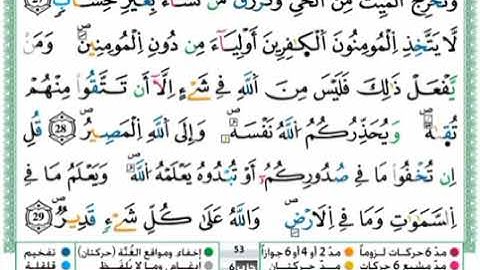 وَتُخْرِجُ الْمَيِّتَ مِنَ الْحَيِّ وَتَرْزُقُ مَن تَشَاءُ بِغَيْرِ حِسَابٍ 27
لَّا يَتَّخِذِ الْمُومِنُونَ الْكَٰفِرِينَ أَوْلِيَآءَ مِن دُونِ الْمُومِنِينَ وَمَنْ
يَّفْعَلْ ذَٰلِكَ فَلَيْسَ مِنَ اللَّهِ فِي شَيْءٍ إِلَّآ أَن تَتَّقُوا مِنْهُمْ
تُقَىٰةً وَيُحَذِّرُكُمُ اللَّهُ نَفْسَهُ وَإِلَى اللَّهِ الْمَصِيرُ 28 قُلِ
اِن تُخْفُوا مَا فِي صُدُورِكُمُ أَوْ تُبْدُوهُ يَعْلَمْهُ اللَّهُ وَيَعْلَمُ مَا فِي
اِلسَّمَٰوَٰتِ وَمَا فِي اِلَارْضِ وَاللَّهُ عَلَىٰ كُلِّ شَيْءٍ قَدِيرٌ 29
مدّ 6 حركات لزوماً مدّ 2 أو 4 أو 6 جوازاً 53 إخفاء ومواقع الغُنَّة (حركتان) تفخيم
مدّ مشبع 6 حركات مدّ حركتان إدغام، وما لا يُلفَظ قلقلة